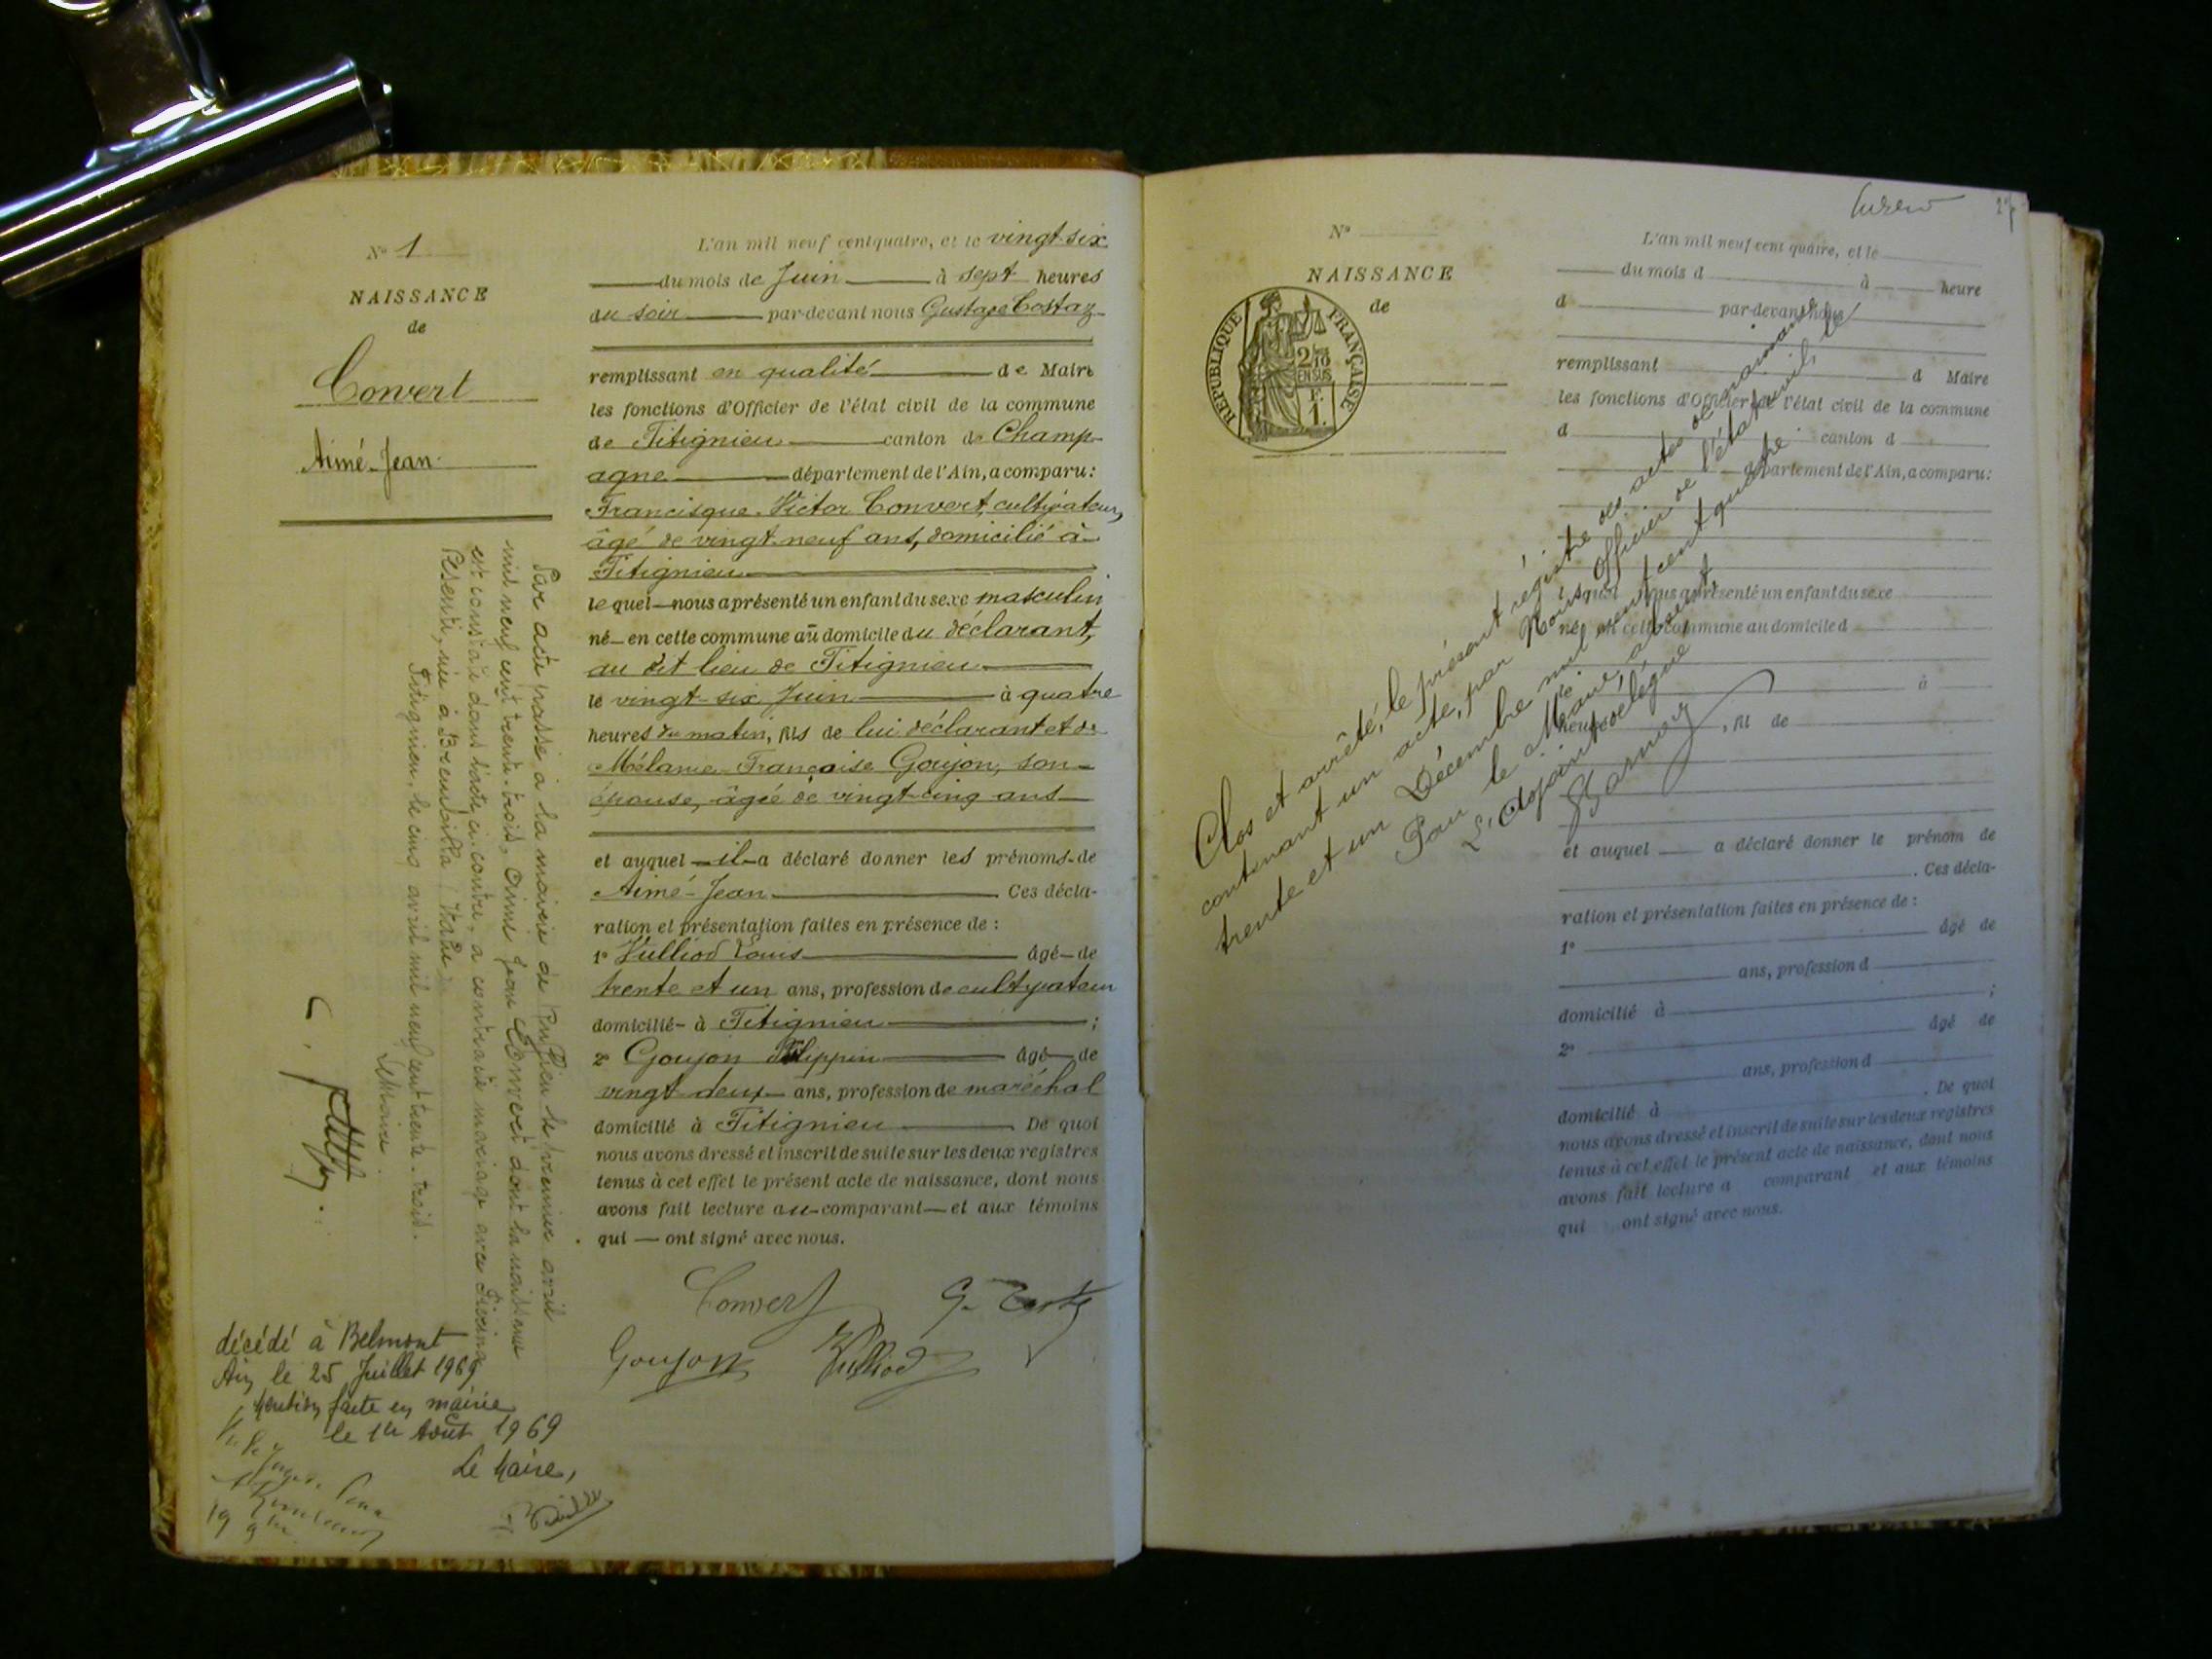 N° 1
NAISSANCE
de
Convert
Aimé-Jean
L'an mil neuf cent quatre, et le vingt-six
du mois de Juin à sept heures
du soir par-devant nous Gustave Costaz
remplissant en qualité de Maire
les fonctions d'Officier de l'état civil de la commune
de Fitignieu canton de Champ-
agne département de l'Ain, a comparu:
Francisque-Victor Convert, cultivateur,
âgé de vingt-neuf ans, domicilié à
Fitignieu
le quel nous a présenté un enfant du sexe masculin
né en cette commune au domicile du déclarant,
au dit lieu de Fitignieu
le vingt-six Juin à quatre
heures du matin, fils de lui déclarant et de
Mélanie-Françoise Goujon, son
épouse, âgée de vingt-cinq ans
et auquel il a déclaré donner les prénoms de
Aimé-Jean Ces décla-
ration et présentation faites en présence de :
1° Vulliod Louis âgé de
trente et un ans, profession de cultivateur
domicilié à Fitignieu ;
2° Goujon âgé de
vingt deux ans, profession de maréchal
domicilié à Fitignieu De quoi
nous avons dressé et inscrit de suite sur les deux registres
tenus à cet effet le présent acte de naissance, dont nous
avons fait lecture au comparant et aux témoins
qui ont signé avec nous.
Convert
Goujon Vulliod
Par acte passé à la mairie de le premier avril
mil neuf cent trente-trois, Aimé Jean Convert dont la naissance
est constatée dans l'acte ci-contre, a contracté mariage avec
née à Brembilla (Italie)
Fitignieu, le cinq avril mil neuf cent trente-trois.
Le Maire
décédé à Belmont
Ain le 25 Juillet 1969
Mention faite en mairie
le 1er Août 1969
Le Maire,
N°
NAISSANCE
de
RÉPUBLIQUE FRANÇAISE
2/10
EN SUS
1 F.
L'an mil neuf cent quatre, et le
du mois d à heure
d par-devant nous
remplissant d Maire
les fonctions d'Officier de l'état civil de la commune
d canton d
département de l'Ain, a comparu:
lequel nous a présenté un enfant du sexe
né en cette commune au domicile d
à
heure , fil de
et auquel a déclaré donner le prénom de
. Ces décla-
ration et présentation faites en présence de :
1° âgé de
ans, profession d
domicilié à ;
2° âgé de
ans, profession d
domicilié à . De quoi
nous avons dressé et inscrit de suite sur les deux registres
tenus à cet effet le présent acte de naissance, dont nous
avons fait lecture a comparant et aux témoins
qui ont signé avec nous.
Clos et arrêté, le présent régistre des actes de naissance
contenant un acte, par Nous Officier de l'état civil, le
trente et un Décembre mil neuf cent quatre.
Pour le Maire, absent,
L'Adjoint délégué